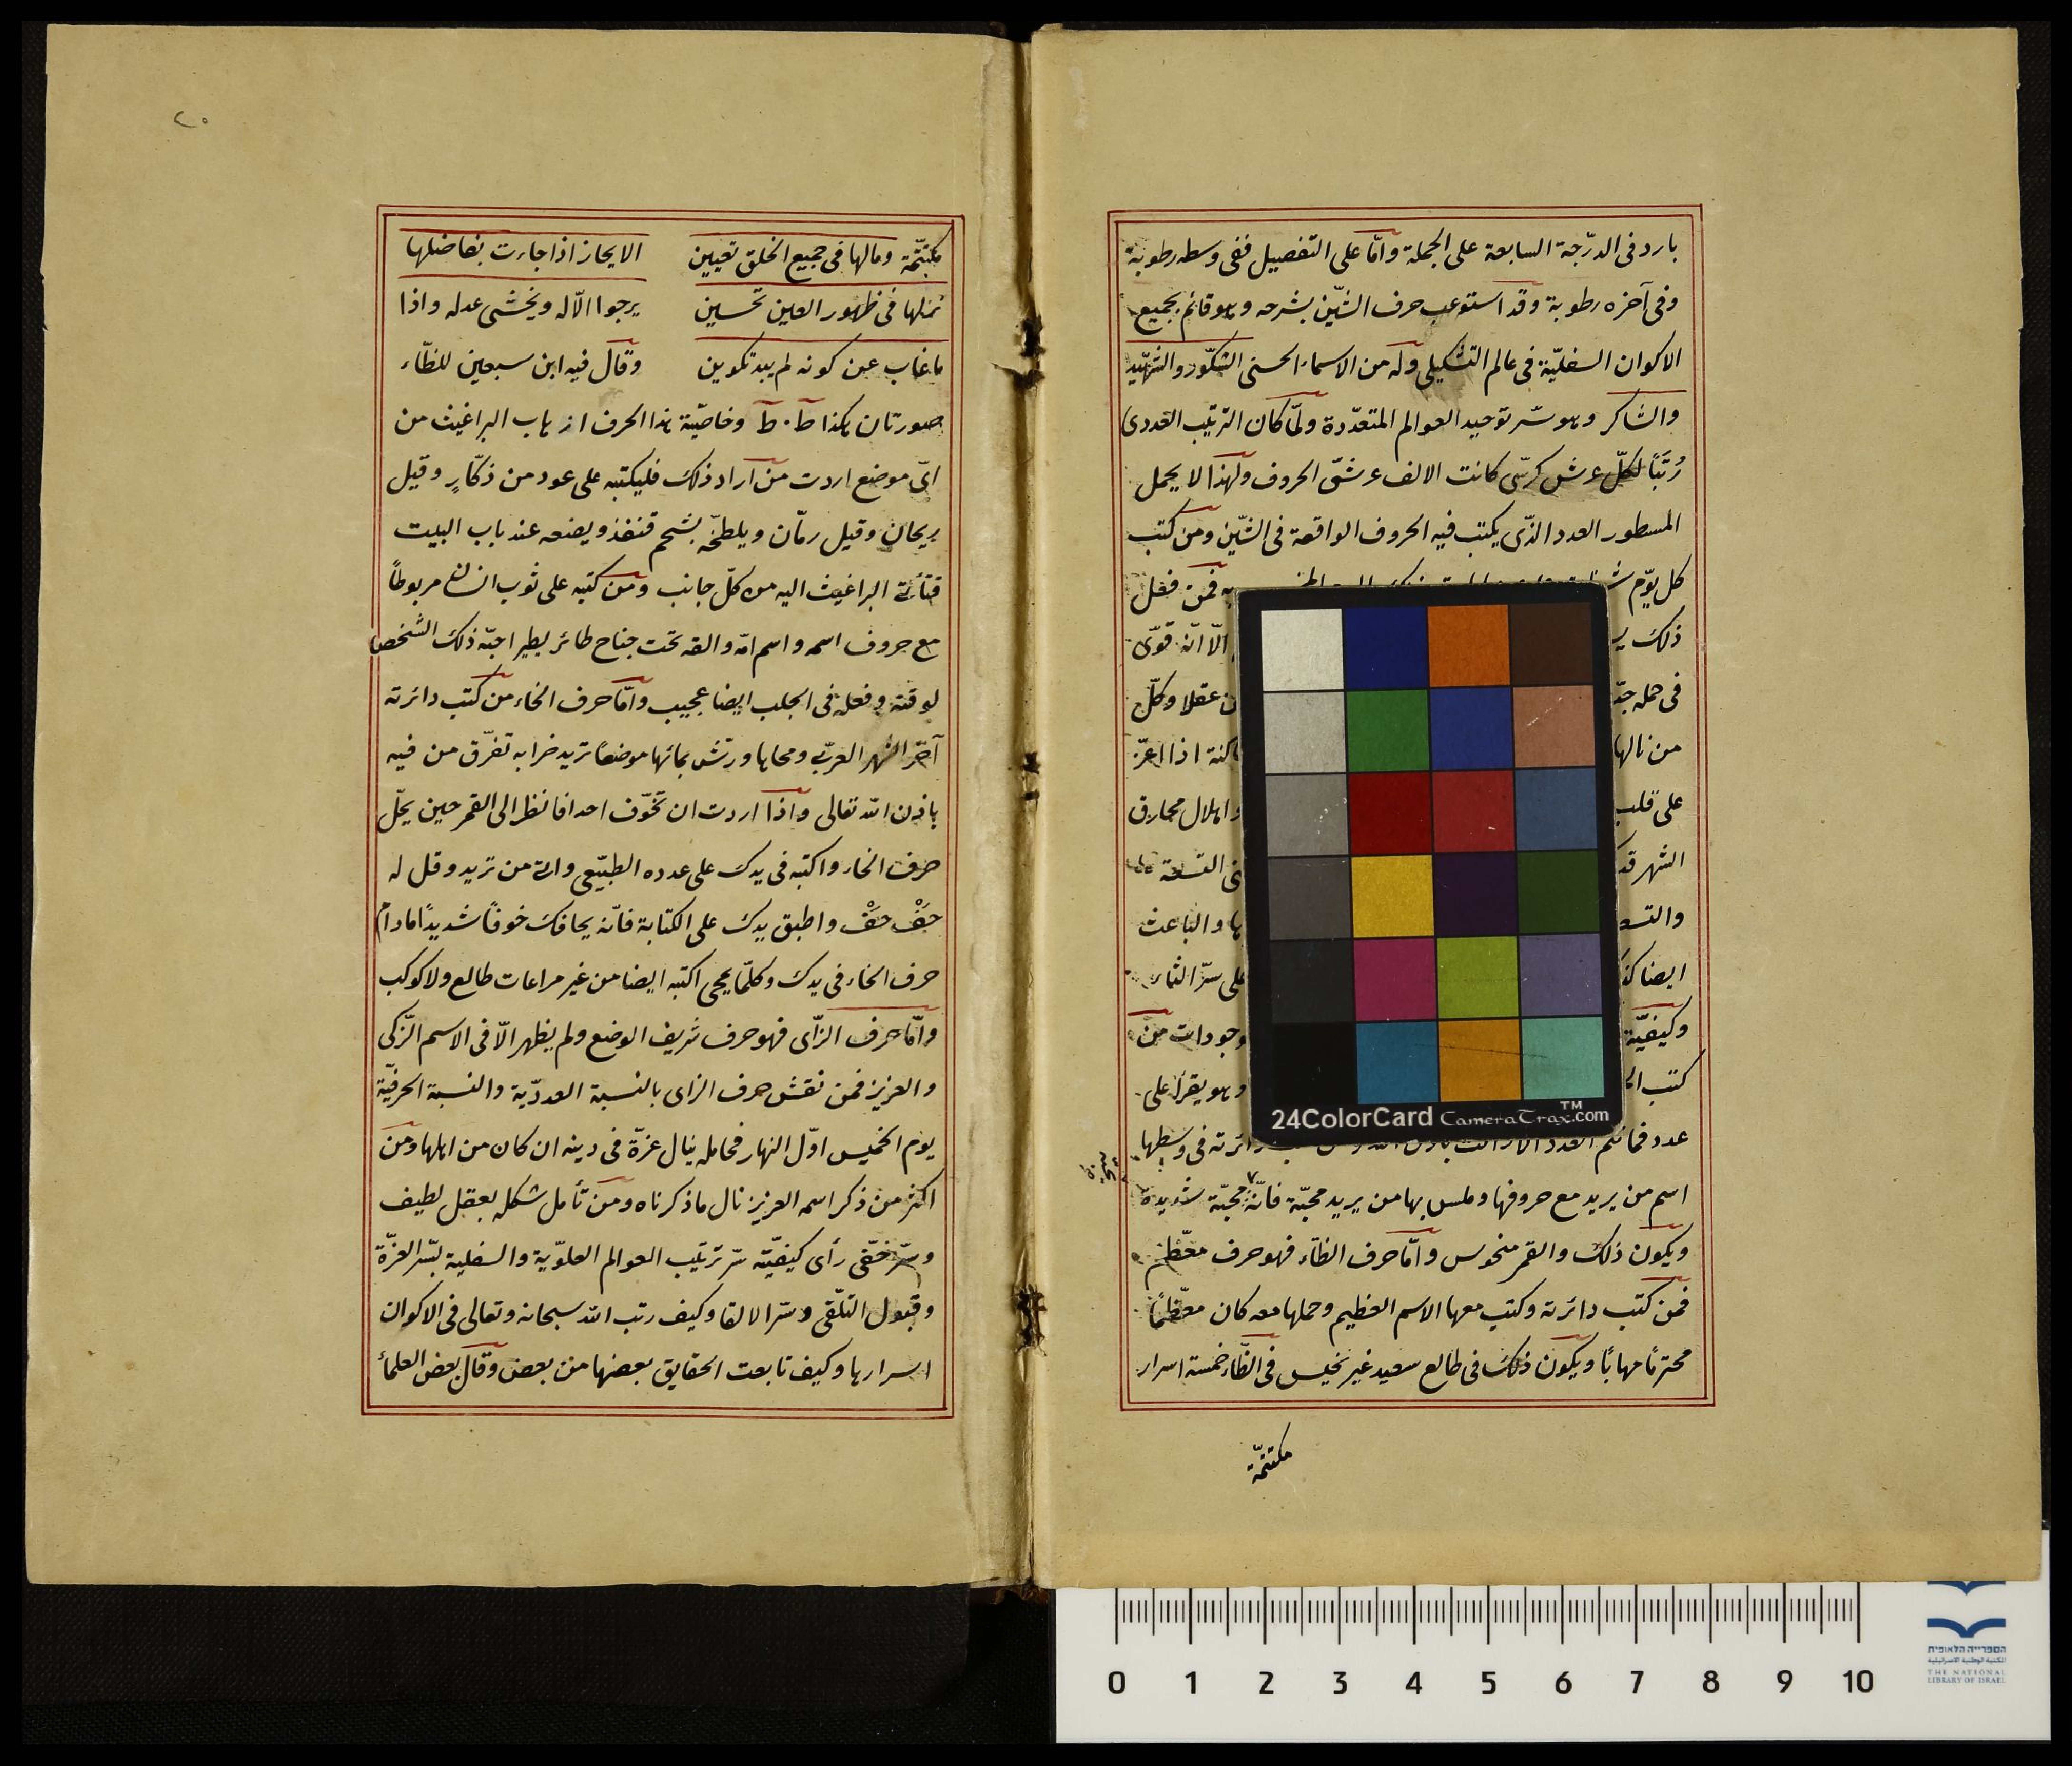 بارد فى الدرّجة السابعة على الجملة وامّا على التفصيل ففى وسطه رطوبة
وفى آخره رطوبة وقد استوعب حرف الشّين بشرحه وهو قائم بجميع
الاكوان السفليّة فى عالم التشكيلى وله من الاسماء الحسنى الشكّور والشهّيد
والشاكر وهو سّر توحيد العوالم المتعدّدة ولمّا كان الترتيب العددى
رُتَبًا لكلّ عرش كرسّى كانت الالف عرشّ الحروف ولهذا لا يحمل
المسطور العدد الذّى يكتب فيه الحروف الواقعة فى الشّين ومن كتب
كل يوّم فمن فعل
ذلك الّا انّه قوّى
فى حمله عقلا وكلّ
من نالها اذا اعزّ
على قلب واهلال
الشهر
والباعث
ايضا على سرّ
وكيفيّة من
كتب وهو يقرأ على
عدد العدد فى وسطها
اسم من يريد مع حروفها وملس بها من يريد محبّة فانّه محبّة شديدة
ويكون ذلك والقمر منحوس وامّا حرف الظآء فهو حرف معّظم
فمن كتب دائرته وكتب معها الاسم العظيم وحملها معه كان معّظمًا
محترمًا مهابًا ويكون ذلك فى طالع سعيد غير نحيس فى الظّاء خمسة اسرار
مكتتمّة
٢٠
مكتتمّة ومالها فى جميع الخلق تعيين الا يحاز اذا جاءت بفاضلها
نمنلها فى ظهور العين تحسين يرجوا الآله ويخشى عدله واذا
ما غاب عن كونه لم يبد تكوين وقال فيه ابن سبعين للظّاء
صورتان هكذا ط . ظ وخاصّية هذا الحرف ازهاب البراغيث من
اىّ موضع اردت من اراد ذلك فليكتبه على عود من ذكّارٍ وقيل
ريحان وقيل رمّان ويلطخّه بشحم قنفذ ويضعه عند باب البيت
فتأتى البراغيث اليه من كلّ جانب ومن كتبه على ثوب انسان مربوطاً
مع حروف اسمه واسم امّه والقه تحت جناح طائر يطير اجبّه ذلك الشخص
لوقته وفعله فى الجلب ايضا عجيب وامّا حرف الخاء من كتب دائرته
آخر الشهر العربّى ومحاها ورتش بمائها موضعًا تريد خرابه تفرّق من فيه
باذن الله تعالى واذا اردت ان تخّوف احدا فانظر الى القمر حين يحّل
حرف الخاء واكتبه فى يدك على عدده الطبيّعى وات من تريد وقل له
خَفْ خَفْ واطبق يدك على الكتابة فانّه يخافك خوفاً شديدًا مادام
حرف الخاء فى يدك وكلمّا يمحى اكتبه ايضا من غير مراعات طالع ولا كوكب
وامّا حرف الزّاى فهو حرف شريف الوضع ولم يظهر الّا فى الاسم الزّكى
والعزيز فمن نقش حرف الزاى بالنسبة العددّية والنسبة الحرفيّة
يوم الخميس اوّل النهار فحامله ينال عزّة فى دينه ان كان من اهلها ومن
اكثر من ذكر اسمه العزيز نال ما ذكرناه ومن تأمل شكله بعقل لطيف
وسّر خفّى رأى كيفيّة سّر ترتيب العوالم العلوّية والسفلية بسّر العزّة
وقبول التلّقى وسّر الالقا وكيف رتب الله سبحانه وتعالى فى الاكوان
اسرارها وكيف تابعت الحقايق بعضها من بعض وقال بعض العلمآء
24ColorCard CameraTrax.com™
0 1 2 3 4 5 6 7 8 9 10
הספרייה הלאומית
المكتبة الوطنية الاسرائيلية
THE NATIONAL
LIBRARY OF ISRAEL